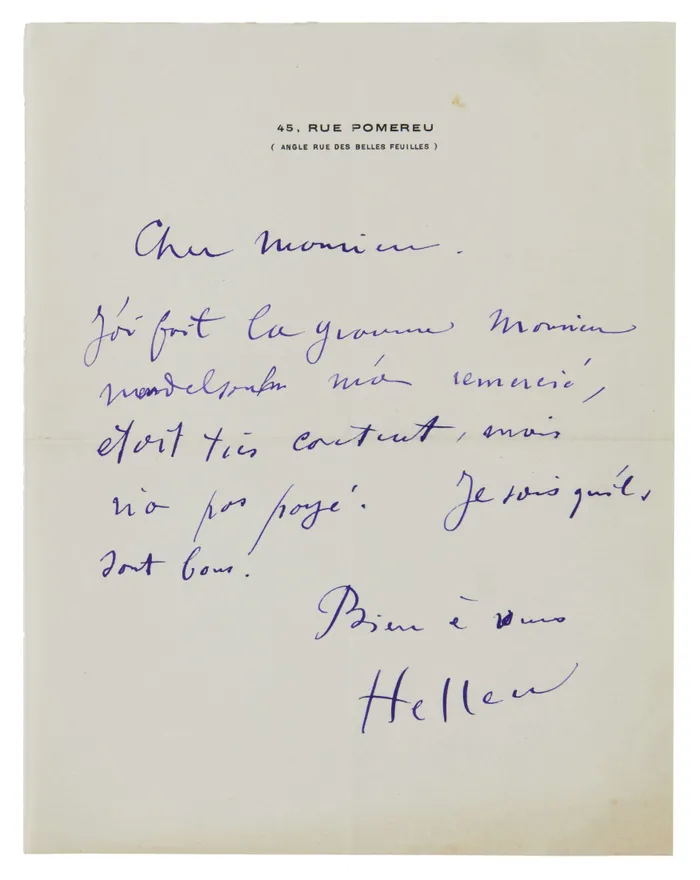 45, RUE POMEREU
( ANGLE RUE DES BELLES FEUILLES )
Cher Monsieur.
J'ai fait la gravure Monsieur
m'a remercié,
était très content, mais
n'a pas payé. Je sais qu'ils
sont bons.
Bien à vous
Helleu